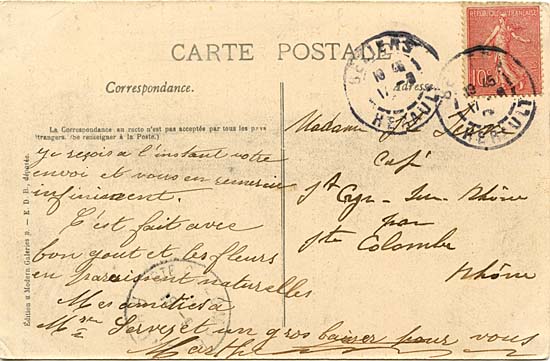 CARTE POSTALE
Correspondance.
Adresse
La Correspondance au recto n'est pas acceptée par tous les pays
étrangers. (Se renseigner à la Poste.)
Je reçois à l'instant votre
envoi et vous en remercie
infiniment.
C'est fait avec
bon gout et les fleurs
en paraissent naturelles
Mes amitiés à
Mme Servez et un gros baiser pour vous
Marthe
Madame
Café
St Cyr-sur-Rhône
par
Ste Colombe
Rhône
BEZIERS
HERAULT
BEZIERS
HERAULT
REPUBLIQUE FRANÇAISE
10c
Edition u Modern Galeries p. — E. D. B. déposée.